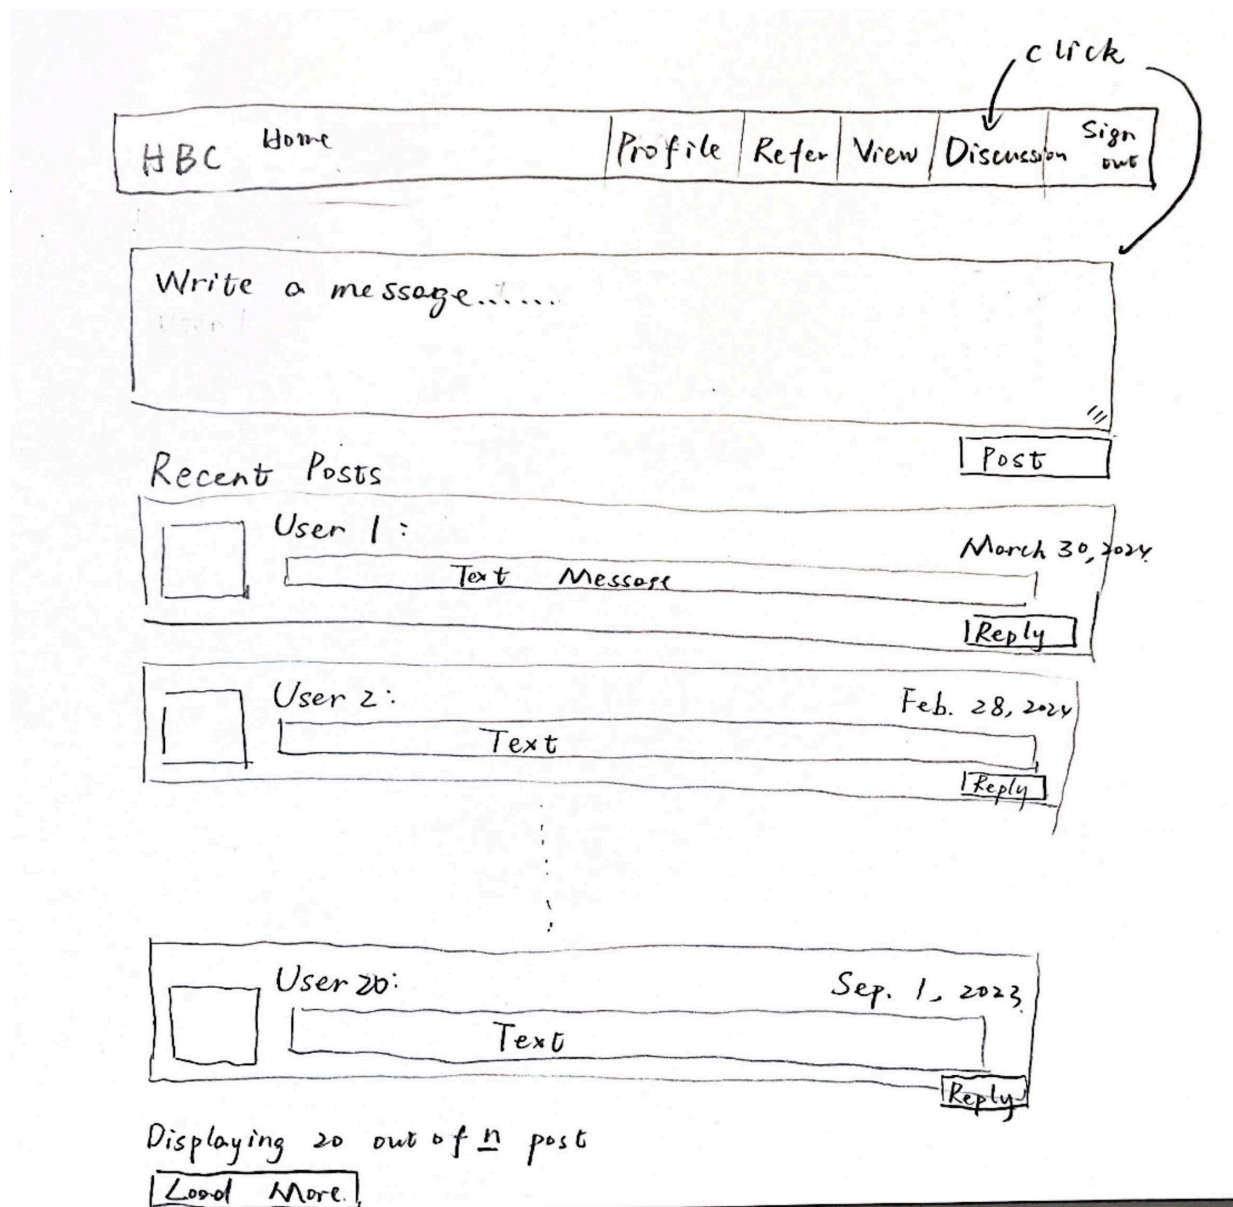 click
HBC Home Profile Refer View Discussion Sign out
Write a message......
Post
Recent Posts
User 1:
March 30, 2024
Text Message
Reply
User 2:
Feb. 28, 2024
Text
Reply
User 20:
Sep. 1, 2023
Text
Reply
Displaying 20 out of n post
Load More